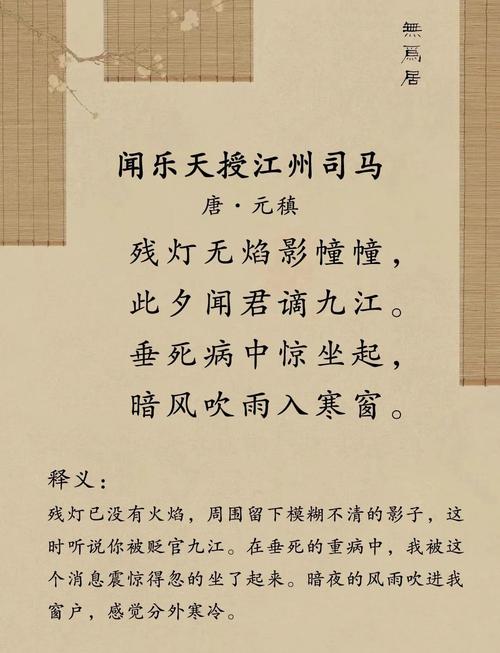 無為居
闻乐天授江州司马
唐·元稹
残灯无焰影幢幢，
此夕闻君谪九江。
垂死病中惊坐起，
暗风吹雨入寒窗。
释义：
残灯已没有火焰，周围留下模糊不清的影子，这
时听说你被贬官九江。在垂死的重病中，我被这
个消息震惊得忽的坐了起来。暗夜的风雨吹进我
窗户，感觉分外寒冷。